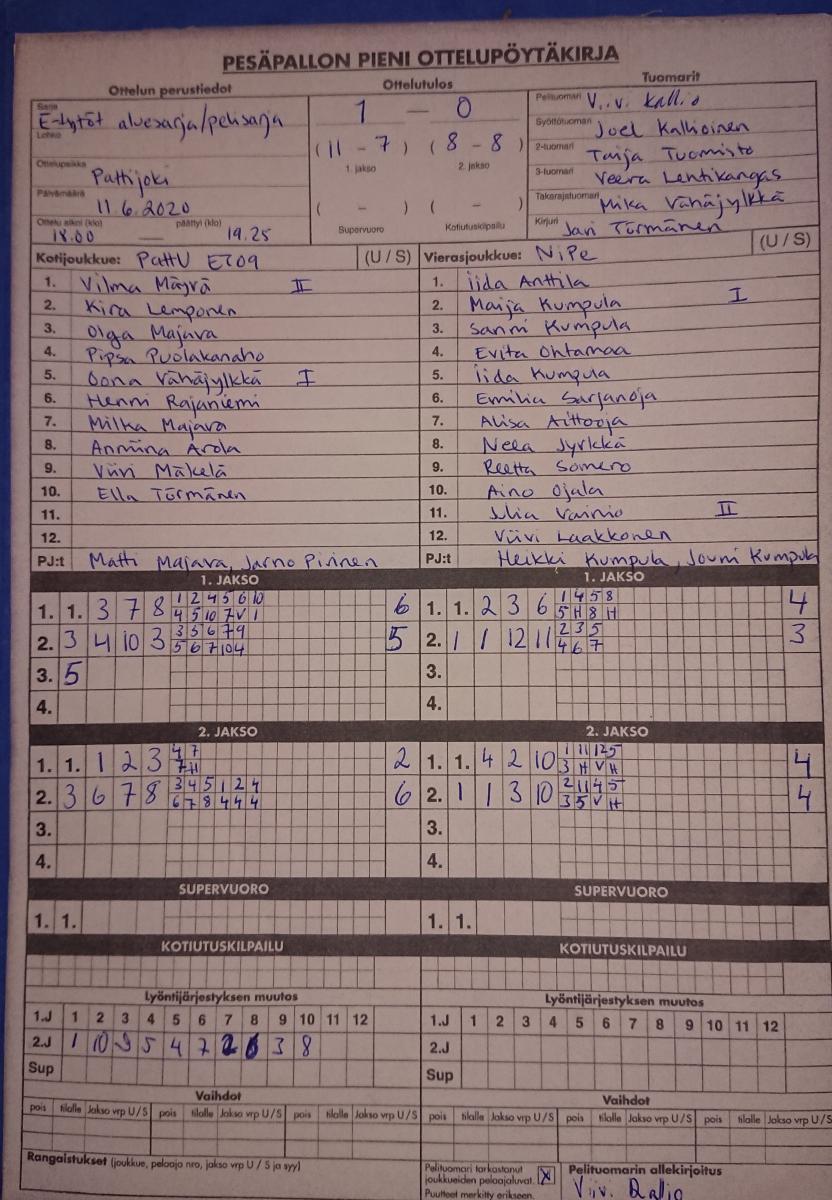 PESÄPALLON PIENI OTTELUPÖYTÄKIRJA
Ottelun perustiedot Ottelutulos Tuomarit
Sarja E-tytöt aluesarja/pelisarja
Lohko
Ottelupaikka Pattijoki
Päivämäärä 11.6.2020
Ottelu alkoi (klo) päättyi (klo)
18.00 — 19.25
1 — 0
(11 - 7) (8 - 8)
1. jakso 2. jakso
( - ) ( - )
Supervuoro Kotiutuskilpailu
Pelituomari Viivi Kallio
Syöttötuomari Joel Kallioinen
2-tuomari Taija Tuomisto
3-tuomari Veera Lehtikangas
Takarajatuomari Mika Vähäjylkkä
Kirjuri Jari Törmänen
Kotijoukkue: PattU ET09 (U / S)
1. Vilma Mäyrä II
2. Kira Lemponen
3. Olga Majava
4. Pipsa Puolakanaho
5. Oona Vähäjylkkä I
6. Henni Rajaniemi
7. Milka Majava
8. Anniina Arola
9. Viivi Mäkelä
10. Ella Törmänen
11.
12.
PJ:t Matti Majava, Jarno Pirinen
Vierasjoukkue: NiPe (U / S)
1. Iida Anttila
2. Maija Kumpula I
3. Sanni Kumpula
4. Evita Ohtamaa
5. Iida Kumpula
6. Emilia Sarjanoja
7. Alisa Aittooja
8. Neea Jyrkkä
9. Reetta Somero
10. Aino Ojala
11. Julia Vainio II
12. Viivi Laakkonen
PJ:t Heikki Kumpula, Jouni Kumpula
1. JAKSO 1. JAKSO
1. 1. 3 7 8 1 2 4 5 6 10 6
4 5 10 7 V 1
2. 3 4 10 3 3 5 6 7 9 5
5 6 7 10 4
3. 5
4.
1. 1. 2 3 6 1 4 5 8 4
5 H 8 H
2. 1 1 12 11 2 3 5 3
4 6 7
3.
4.
2. JAKSO 2. JAKSO
1. 1. 1 2 3 4 7 2
7 H
2. 3 6 7 8 3 4 5 1 2 4 6
6 7 8 4 4 4
3.
4.
1. 1. 4 2 10 1 11 12 5 4
3 H V H
2. 1 1 3 10 2 11 4 5 4
3 5 V H
3.
4.
SUPERVUORO SUPERVUORO
1. 1. 1. 1.
KOTIUTUSKILPAILU KOTIUTUSKILPAILU
Lyöntijärjestyksen muutos Lyöntijärjestyksen muutos
1.J 1 2 3 4 5 6 7 8 9 10 11 12 1.J 1 2 3 4 5 6 7 8 9 10 11 12
2.J 1 10 9 5 4 7 2 6 3 8 2.J
Sup Sup
Vaihdot Vaihdot
pois tilalle Jakso vrp U / S pois tilalle Jakso vrp U / S pois tilalle Jakso vrp U / S pois tilalle Jakso vrp U / S pois tilalle Jakso vrp U / S pois tilalle Jakso vrp U / S
Rangaistukset (joukkue, pelaaja nro, jakso vrp U / S ja syy)
Pelituomari tarkastanut
joukkueiden pelaajaluvat. X
Puutteet merkitty erikseen.
Pelituomarin allekirjoitus